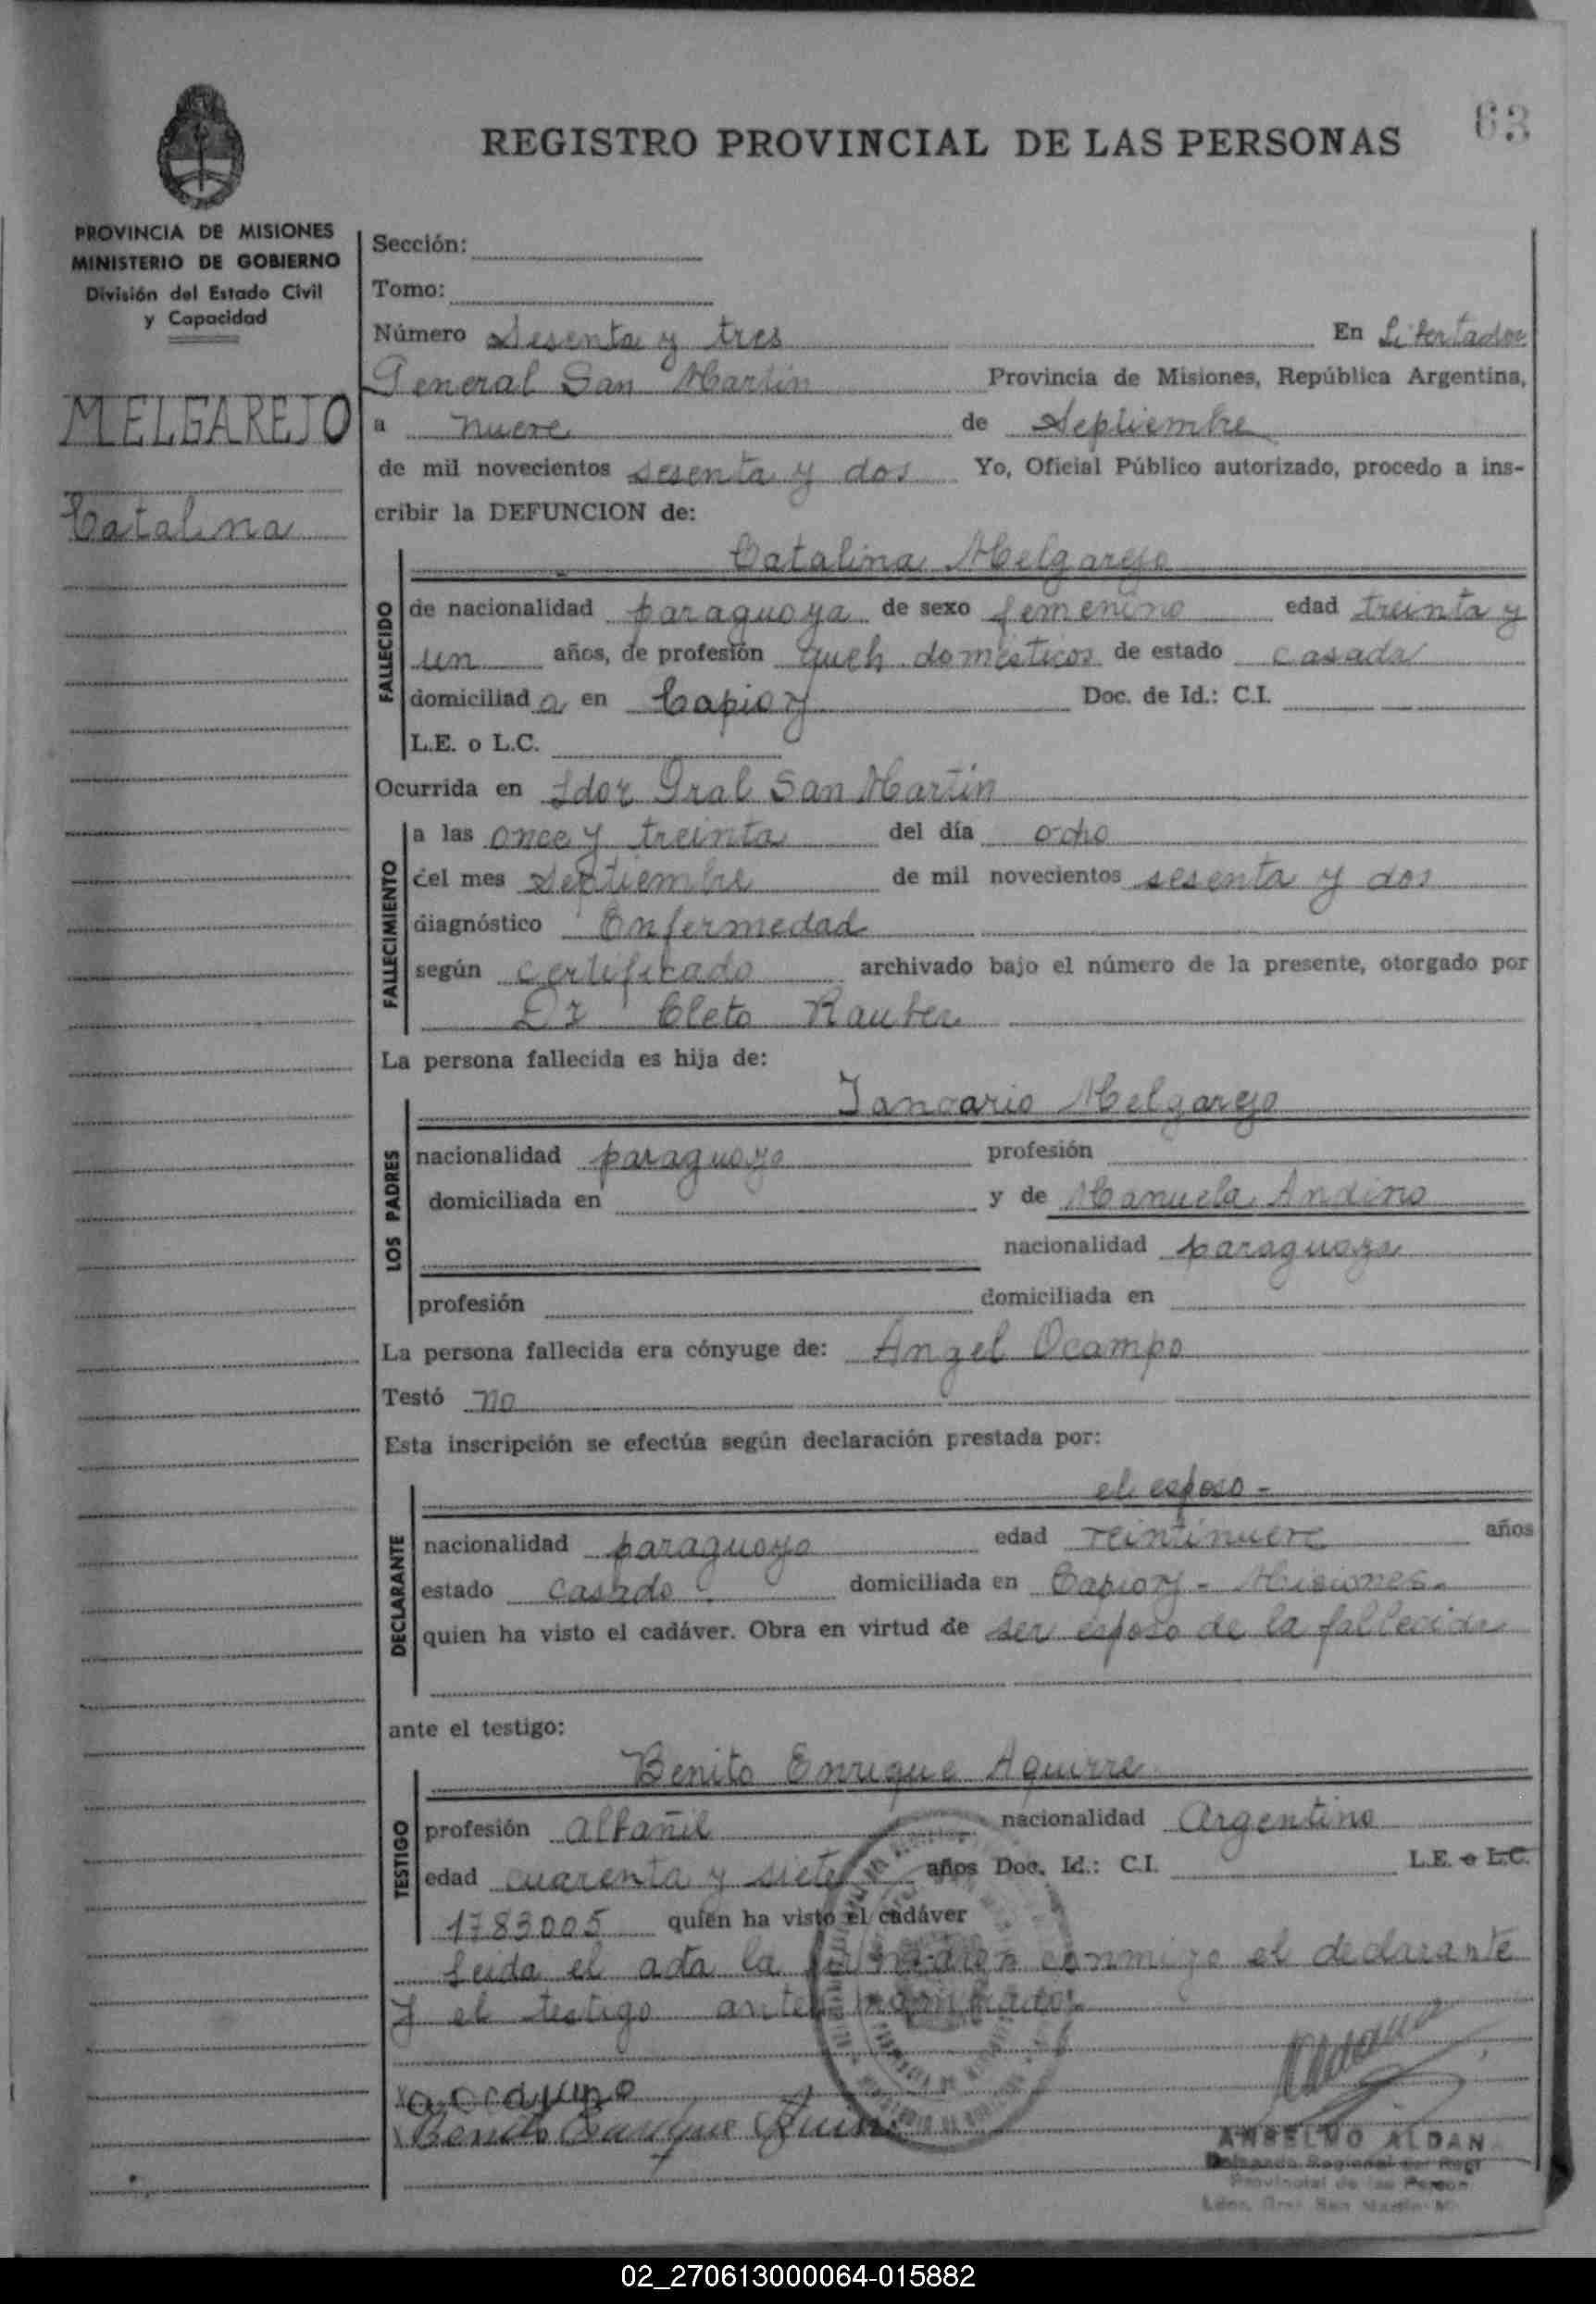 63
REGISTRO PROVINCIAL DE LAS PERSONAS
PROVINCIA DE MISIONES
MINISTERIO DE GOBIERNO
División del Estado Civil
y Capacidad
MELGAREJO
Catalina
Sección:
Tomo:
Número Sesenta y tres En Libertador
General San Martín Provincia de Misiones, República Argentina,
a nueve de Septiembre
de mil novecientos sesenta y dos Yo, Oficial Público autorizado, procedo a ins-
cribir la DEFUNCION de:
Catalina Melgarejo
FALLECIDO
de nacionalidad paraguaya de sexo femenino edad treinta y
un años, de profesión queh. domésticos de estado casada
domiciliad a en Capioy Doc. de Id.: C.I.
L.E. o L.C.
Ocurrida en Ldor Gral San Martín
FALLECIMIENTO
a las once y treinta del día ocho
del mes Septiembre de mil novecientos sesenta y dos
diagnóstico Enfermedad
según certificado archivado bajo el número de la presente, otorgado por
Dr Cleto Rauber
La persona fallecida es hija de:
Januario Melgarejo
LOS PADRES
nacionalidad paraguayo profesión
domiciliada en y de Manuela Andino
nacionalidad paraguaya
profesión domiciliada en
La persona fallecida era cónyuge de: Angel Ocampo
Testó no
Esta inscripción se efectúa según declaración prestada por:
el esposo -
DECLARANTE
nacionalidad paraguayo edad veintinueve años
estado casado domiciliada en Capioy - Misiones.
quien ha visto el cadáver. Obra en virtud de ser esposo de la fallecida
ante el testigo:
Benito Enrique Aguirre
TESTIGO
profesión albañil nacionalidad Argentino
edad cuarenta y siete años Doc. Id.: C.I. L.E. o L.C.
1783005 quien ha visto el cadáver
Leida el acta la firmaron conmigo el declarante
y el testigo antes nombrado.
a ocampo
Benito Enrique
ANSELMO ALDAN
02_270613000064-015882